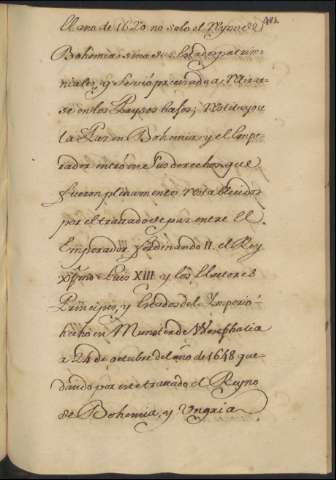 El año de 1620 no solo el Reyno de
Bohemia sino sus Estados patrimo-
niales, y se vio precisado a retirar-
se en los Payses baxos; restituyose
la Paz en Bohemia, y el Empe-
rador entró en sus derechos, que
fueron plenamente restablecidos
por el tratado de paz entre El
Emperador Ferdinando II. el Rey
Xpmo. Luis XIII y los Electores
Principes, y Estados del Imperio
hecho en Munster de Westfhalia
a 24 de octubre del año de 1648 que-
dando por este tratado el Reyno
de Bohemia, y Ungria